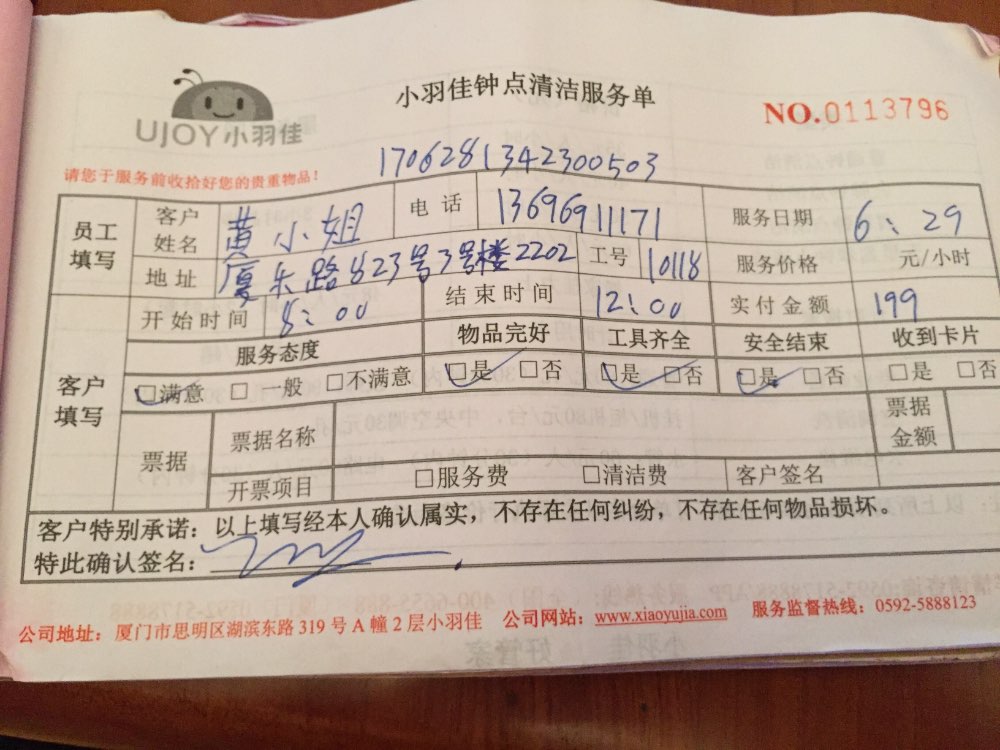 UJOY小羽佳
小羽佳钟点清洁服务单
NO.0113796
请您于服务前收拾好您的贵重物品！
1706281342300503
员工填写 客户姓名 黄小姐 电话 13696911171 服务日期 6：29
地址 厦禾路823号3号楼2202 工号 10118 服务价格 元/小时
开始时间 8：00 结束时间 12：00 实付金额 199
客户填写 服务态度 物品完好 工具齐全 安全结束 收到卡片
☐满意 ☐一般 ☐不满意 ☐是 ☐否 ☐是 ☐否 ☐是 ☐否 ☐是 ☐否
票据 票据名称 票据金额
开票项目 ☐服务费 ☐清洁费 客户签名
客户特别承诺：以上填写经本人确认属实，不存在任何纠纷，不存在任何物品损坏。
特此确认签名：
公司地址：厦门市思明区湖滨东路319号A幢2层小羽佳 公司网站：www.xiaoyujia.com 服务监督热线：0592-5888123